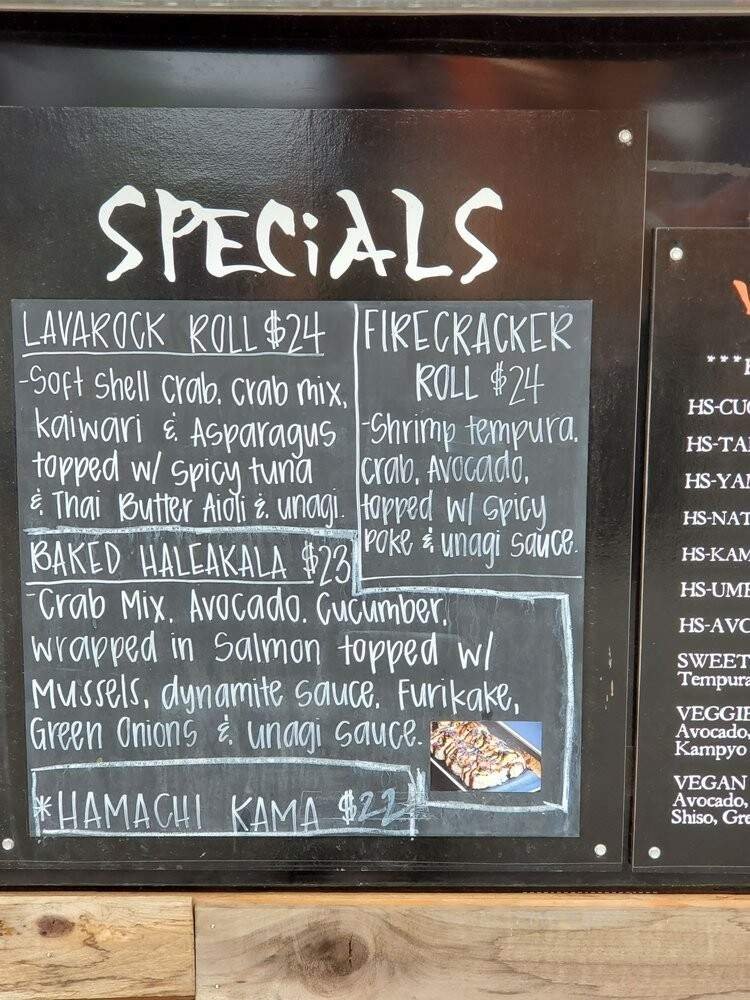 SPECiALS
LAVAROCK ROLL $24
-Soft Shell Crab, Crab mix,
kaiwari & Asparagus
topped w/ spicy tuna
& Thai Butter Aioli & unagi.
FIRECRACKER
ROLL $24
-Shrimp tempura,
crab, Avocado,
topped w/ spicy
poke & unagi sauce.
BAKED HALEAKALA $23
-Crab Mix, Avocado, Cucumber,
wrapped in Salmon topped w/
Mussels, dynamite sauce, Furikake,
Green Onions & unagi sauce.
*HAMACHI KAMA $22
***
SWEET
Tempura
Avocado,
Kampyo
VEGAN
Avocado,
Shiso,